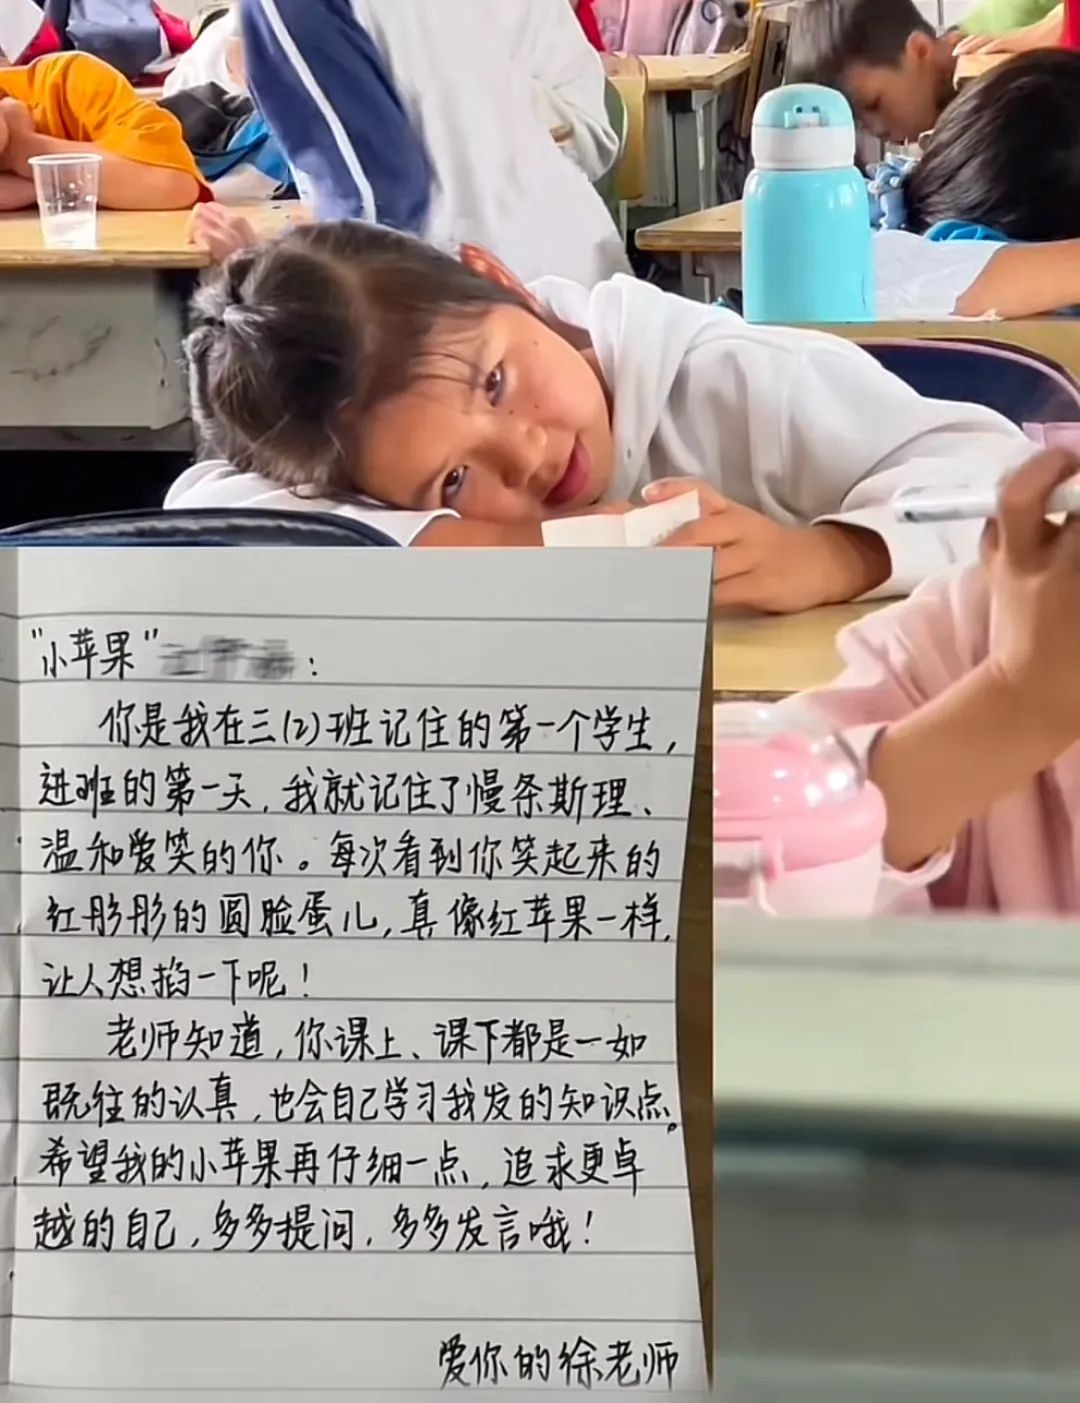 "小苹果"：
你是我在三(2)班记住的第一个学生,
进班的第一天,我就记住了慢条斯理、
温和爱笑的你。每次看到你笑起来的
红彤彤的圆脸蛋儿,真像红苹果一样,
让人想掐一下呢!
老师知道,你课上、课下都是一如
既往的认真,也会自己学习我发的知识点。
希望我的小苹果再仔细一点,追求更卓
越的自己,多多提问,多多发言哦!
爱你的徐老师